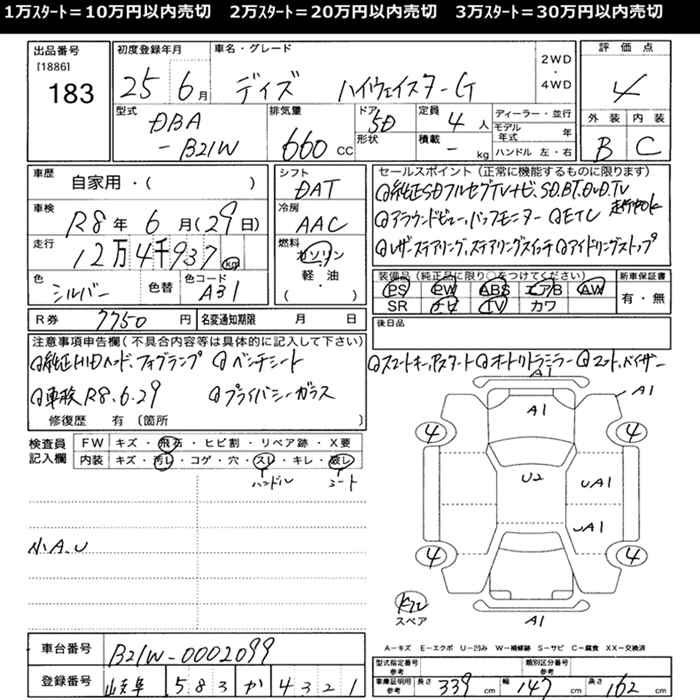 1万スタート＝10万円以内売切　2万スタート＝20万円以内売切　3万スタート＝30万円以内売切
出品番号
[1886]
183
初度登録年月
25 6月
車名・グレード
デイズ ハイウェイスターG
2WD
・
4WD
評価点
4
外装 内装
B C
型式
DBA
-B21W
排気量
660 CC
ドア
5D
形状
定員
4 人
積載
- kg
ディーラー・並行
モデル年式 年
ハンドル 左・右
車歴
自家用・( )
車検
R8年 6月(29日)
走行
12万4千937 km
色
シルバー
色替
色コード
A31
シフト
DAT
冷房
AAC
燃料
ガソリン
軽・油
( )
セールスポイント (正常に機能するものに限ります)
◎純正SDフルセグTVナビ、SD.BT.DVD.TV
◎アラウンドビュー,バックモニター ◎ETC
◎レザーステアリング,ステアリングスイッチ ◎アイドリングストップ
装備品 (純正品に限り○をつけてください)
PS PW ABS エアB AW
SR ナビ TV カワ
新車保証書
有・無
R券 7750円
名変通知期限 月 日
後日品
注意事項申告欄(不具合内容等は具体的に記入して下さい)
◎純正HIDヘッド、フォグランプ ◎ベンチシート
◎車検R8.6.29 ◎プライバシーガラス
修復歴 有 (箇所 )
◎スマートキー,Pスタート ◎オートリトラミラー ◎コート,バイザー
検査員
記入欄
FW キズ・飛石・ヒビ割・リペア跡・X要
内装 キズ・汚レ・コゲ・穴・スレ・キレ・破レ
ハンドル シート
小A.U
A1
A1
A1
4
4
U2
UA1
UA1
4
4
スペア
A1
A-キズ E-エクボ U-凹み W-補修跡 S-サビ C-腐食 XX-交換済
車台番号
B21W-0002099
登録番号
583 か 4321
型式指定番号
参考
類別区分番号
参考
車庫証明用
参考
長さ 339 cm
幅 147 cm
高さ 162 cm